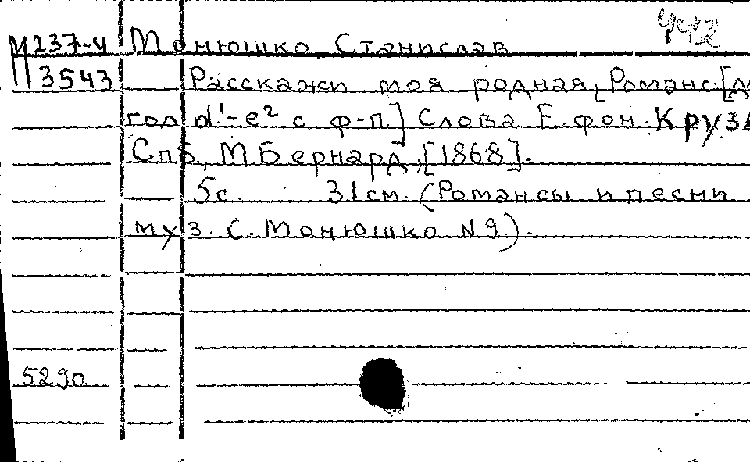 442
М237-4 Монюшко Станислав
3543 Расскажи моя родная, Романс. [Д
гол d'-e² с ф-п.] Слова Е. фон. Круз
Спб, М. Бернард, [1868].
5с. 31см. (Романсы и песни
муз. С. Монюшко N 9).
5290